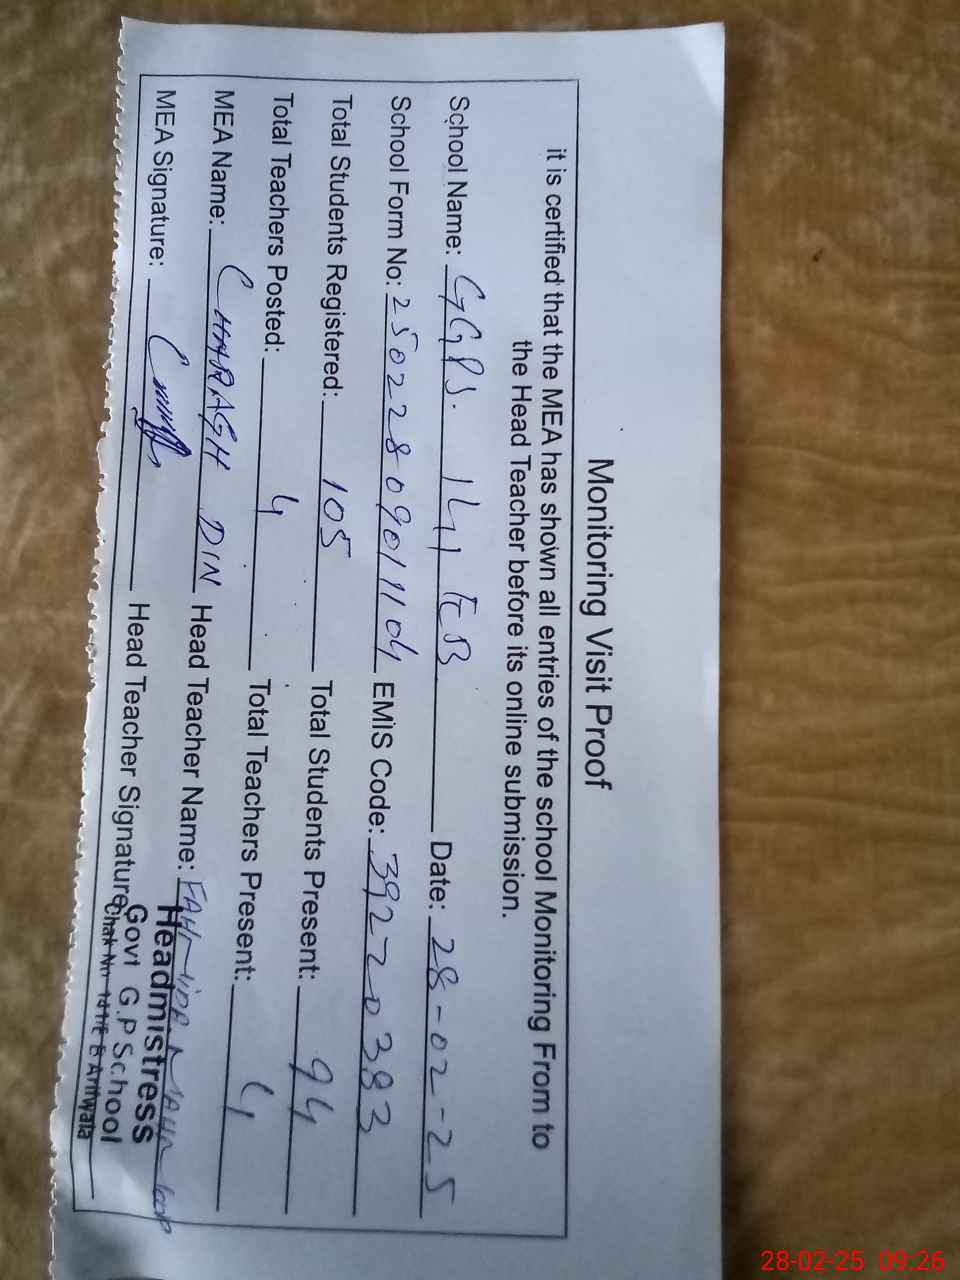 Monitoring Visit Proof
it is certified that the MEA has shown all entries of the school Monitoring From to
the Head Teacher before its online submission.
School Name: GGPS. 141 EB Date: 28-02-25
School Form No: 25022809011104 EMiS Code: 39220383
Total Students Registered: 105 Total Students Present: 94
Total Teachers Posted: 4 Total Teachers Present: 4
MEA Name: CHARAGH DIN Head Teacher Name:
MEA Signature: Head Teacher Signature:
Headmistress
Govt G.P School
Chak No 141/E B Arifwala
28-02-25 09:26